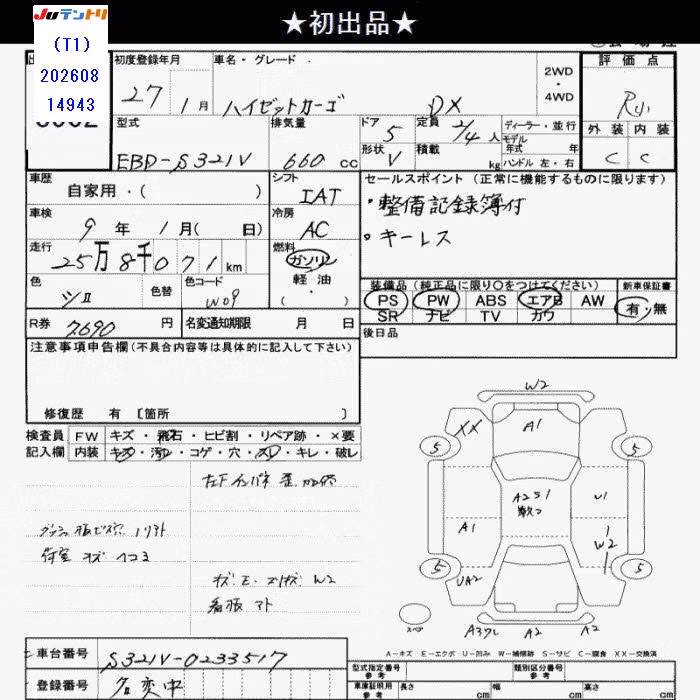 ★初出品★
JUテントリ
(T1)
202608
14943
初度登録年月
27年 1月
車名・グレード
ハイゼットカーゴ DX
2WD
・
4WD
評価点
R
外装 内装
C C
型式
EBD-S321V
排気量
660 cc
ドア
5
形状
V
定員
2/4人
積載
kg
ディーラー・並行
モデル
年式 年
ハンドル 左・右
車歴
自家用・( )
シフト
IAT
セールスポイント(正常に機能するものに限ります)
・整備記録簿付
・キーレス
車検
9年 1月( 日)
冷房
AC
走行
25万8千071km
燃料
ガソリン
軽油
( ・ )
色
シロ
色替
色コード
W09
装備品(純正品に限り○をつけてください)
新車保証書
PS PW ABS エアB AW
SR ナビ TV カワ
有・無
R券 7690円
名変通知期限 月 日
後日品
注意事項申告欄(不具合内容等は具体的に記入して下さい)
修復歴 有 [箇所 ]
検査員
記入欄
FW キズ・飛石・ヒビ割・リペア跡・×要
内装 キズ・汚レ・コゲ・穴・スレ・キレ・破レ
荷室 キズ ヘコミ
W2
XX
A1
5
5
A1
U1
W2
5
5
UA2
A2
A2
スペア
A-キズ E-エクボ U-凹み W-補修跡 S-サビ C-腐食 XX-交換済
車台番号 S321V-0233517
登録番号 名変中
型式指定番号
参考
類別区分番号
参考
車庫証明用
参考
長さ cm
幅 cm
高さ cm